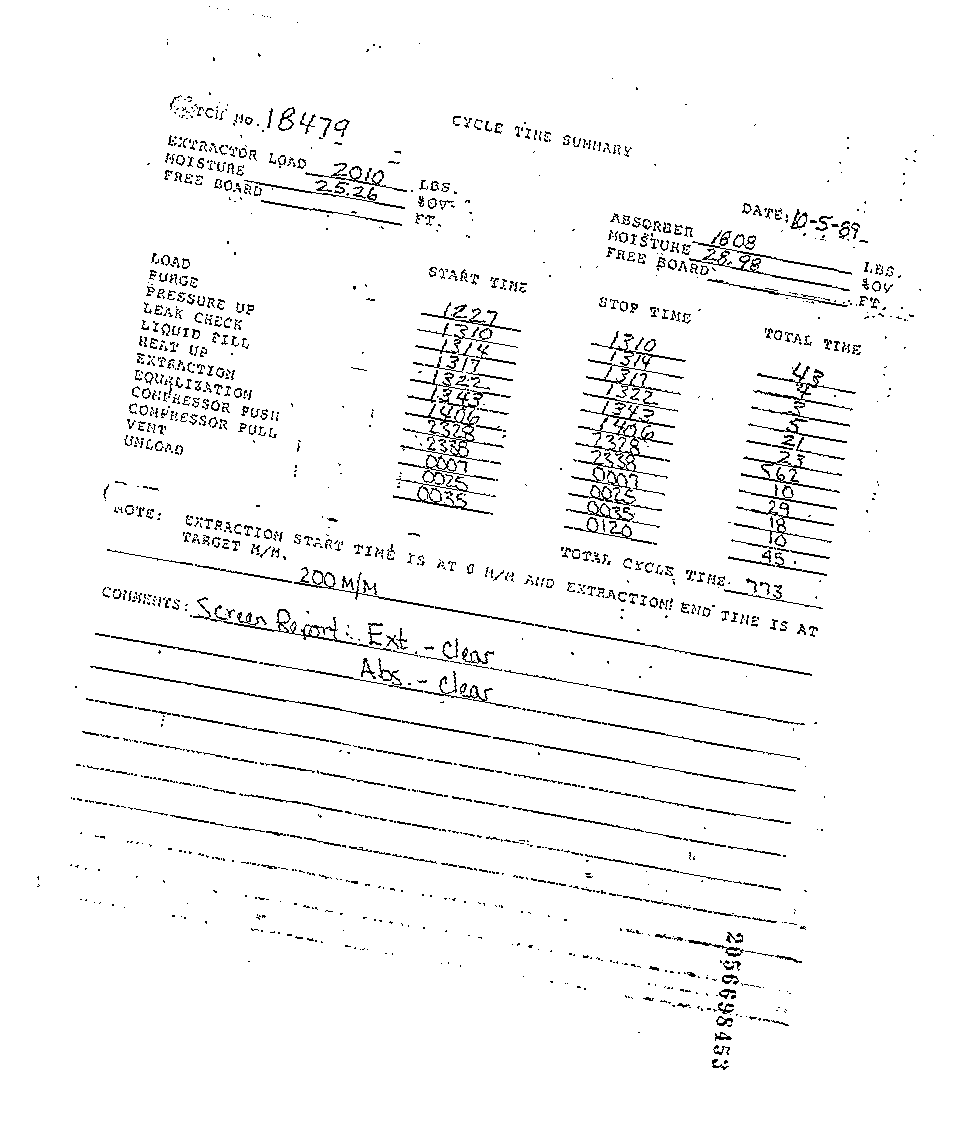 BATCH NO. 18479
CYCLE TIME SUMMARY
EXTRACTOR LOAD 2010 LBS.
MOISTURE 25.26 %OV
FREE BOARD FT.
DATE: 10-5-89
ABSORBER 1608 LBS.
MOISTURE 28.98 %OV
FREE BOARD FT.
START TIME STOP TIME TOTAL TIME
LOAD 1227 1310 43
PURGE 1310 1314 4
PRESSURE UP 1314 1317 3
LEAK CHECK 1317 1322 5
LIQUID FILL 1322 1343 21
HEAT UP 1343 1406 23
EXTRACTION 1406 2328 562
EQUALIZATION 2328 2338 10
COMPRESSOR PUSH 2338 0007 29
COMPRESSOR PULL 0007 0025 18
VENT 0025 0035 10
UNLOAD 0035 0120 45
TOTAL CYCLE TIME: 773
NOTE: EXTRACTION START TIME IS AT 0 M/M AND EXTRACTION END TIME IS AT
TARGET M/M.
200 M/M
COMMENTS: Screen Report: Ext. - Clear
Abs. - Clear
2056698453